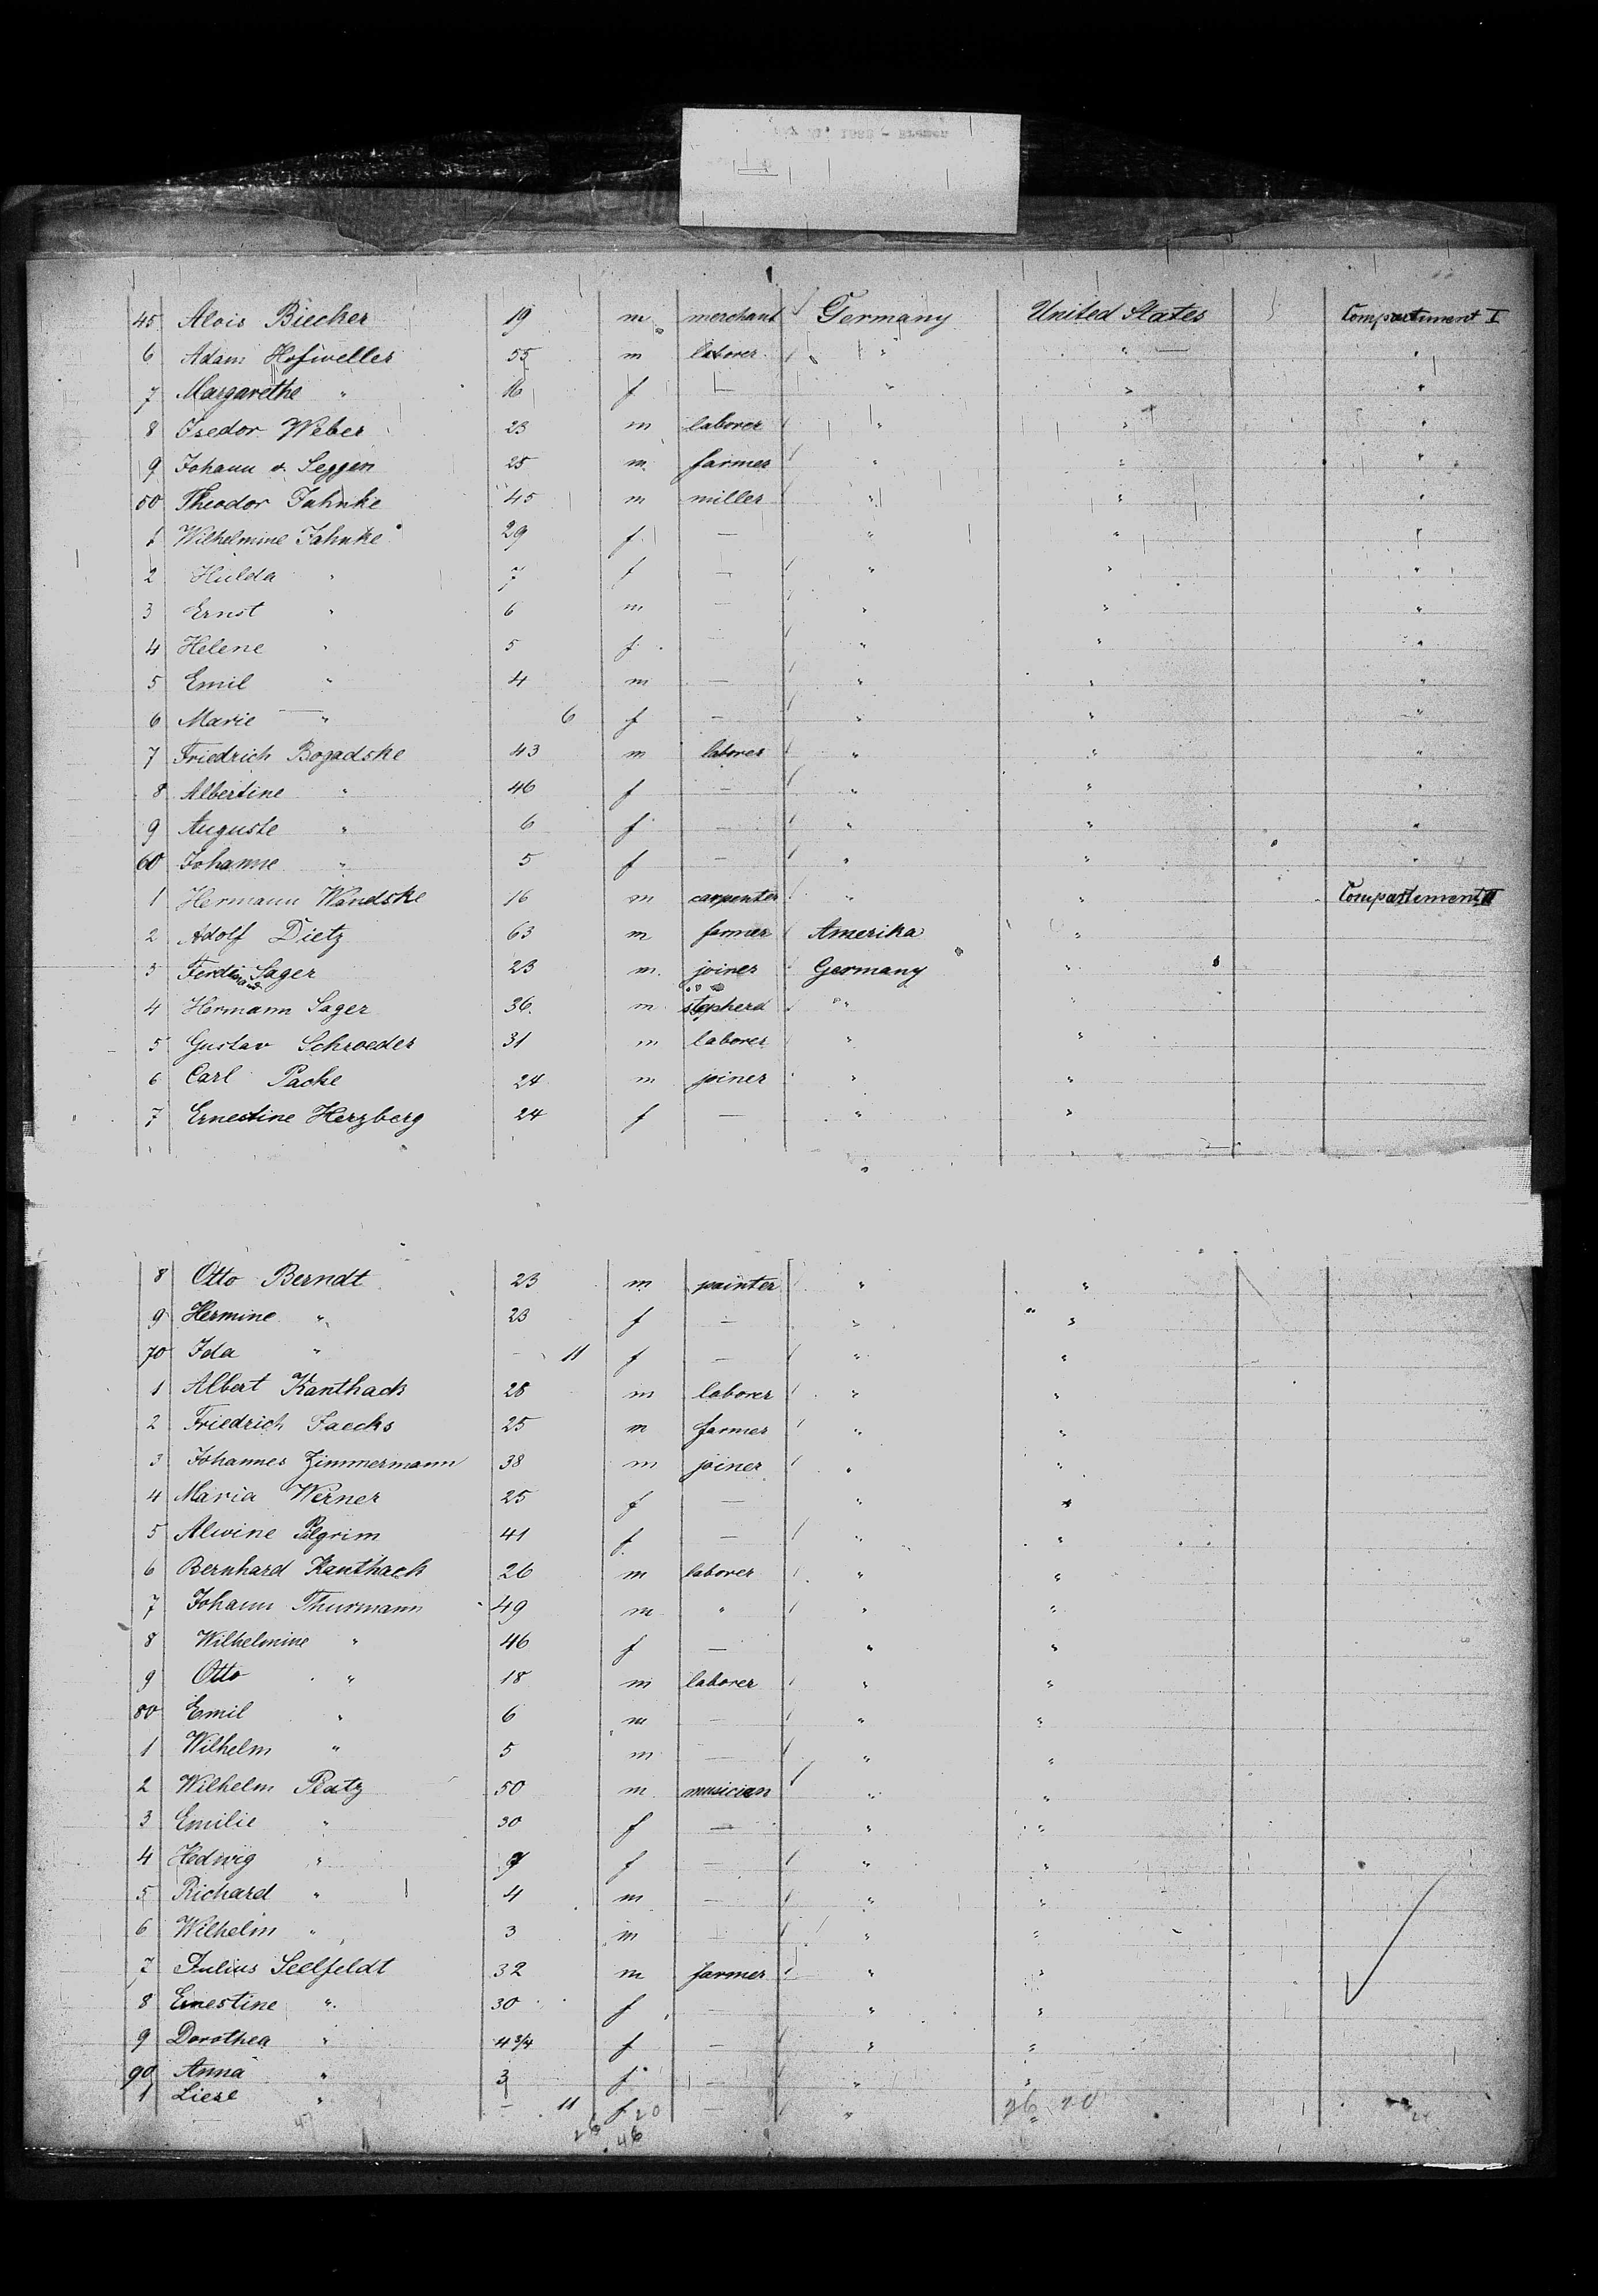 1882 - Bremen
45 Alois Biecker 19 m merchant Germany United States Compartement I
6 Adam Hofweller 55 m laborer " " "
7 Margarethe " 16 f — " " "
8 Isedor Weber 23 m laborer " " "
9 Johann v. Seggen 25 m farmer " " "
50 Theodor Jahnke 45 m miller " " "
1 Wilhelmine Jahnke 29 f — " " "
2 Hulda " 7 f — " " "
3 Ernst " 6 m — " " "
4 Helene " 5 f " " "
5 Emil " 4 m — " " "
6 Marie " 6 f — " " "
7 Friedrich Bogadske 43 m laborer " " "
8 Albertine " 46 f — " " "
9 Auguste " 6 f — " " "
60 Johanne " 5 f — " " "
1 Hermann Wandske 16 m carpenter " " Compartement II
2 Adolf Dietz 63 m farmer Amerika "
3 Ferdinand Sager 23 m joiner Germany "
4 Hermann Sager 36 m " "
5 Gustav Schroeder 31 m laborer " "
6 Carl Packe 24 m joiner " "
7 Ernestine Herzberg 24 f — " "
8 Otto Berndt 23 m painter " "
9 Hermine " 23 f — " "
70 Ida " — 11 f — " "
1 Albert Kanthack 28 m laborer " "
2 Friedrich Saecks 25 m farmer " "
3 Johannes Zimmermann 38 m joiner " "
4 Maria Werner 25 f — " "
5 Alwine Pilgrim 41 f — " "
6 Bernhard Kanthack 26 m laborer " "
7 Johann Thurmann 49 m " " "
8 Wilhelmine " 46 f — " "
9 Otto " 18 m laborer " "
80 Emil " 6 m — " "
1 Wilhelm " 5 m — " "
2 Wilhelm Platz 50 m musician " "
3 Emilie " 30 f — " "
4 Hedwig " 9 f — " "
5 Richard " 4 m — " "
6 Wilhelm " 3 m — " "
7 Julius Seelfeldt 32 m farmer " "
8 Ernestine " 30 f — " "
9 Dorothea " 4 3/4 f — " "
90 Anna " 3 f — " "
1 Liese " — 11 f — " "
47 26 20 26 20
46